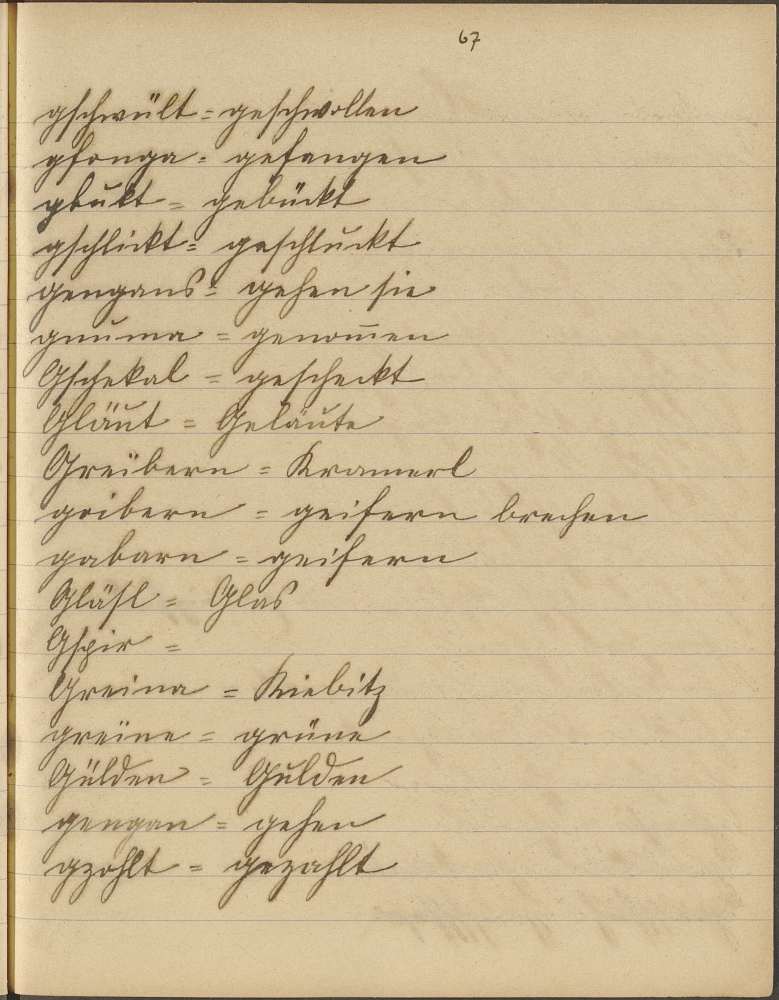 67
gschwült = geschwollen
gfonga = gefangen
gbukt = gebückt
gschlickt = geschluckt
gengans = gehen sie
gnuma = genom̅en
Gschekal = gescheckt
Gläut = Geläute
Greibern = Kramerl
goibern = geifern brechen
gabarn = geifern
Gläsl = Glas
Gspir =
Greina = Kiebitz
greine = grüne
Gülden = Gulden
gengan = gehen
gzohlt = gezahlt